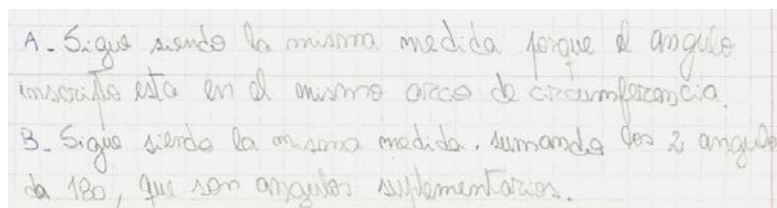 A. Sigue siendo la misma medida porque el angulo
inscripto esta en el mismo arco de circumferencia.
B. Sigue siendo la misma medida. sumando los 2 angulos
da 180, que son angulos suplementarios.